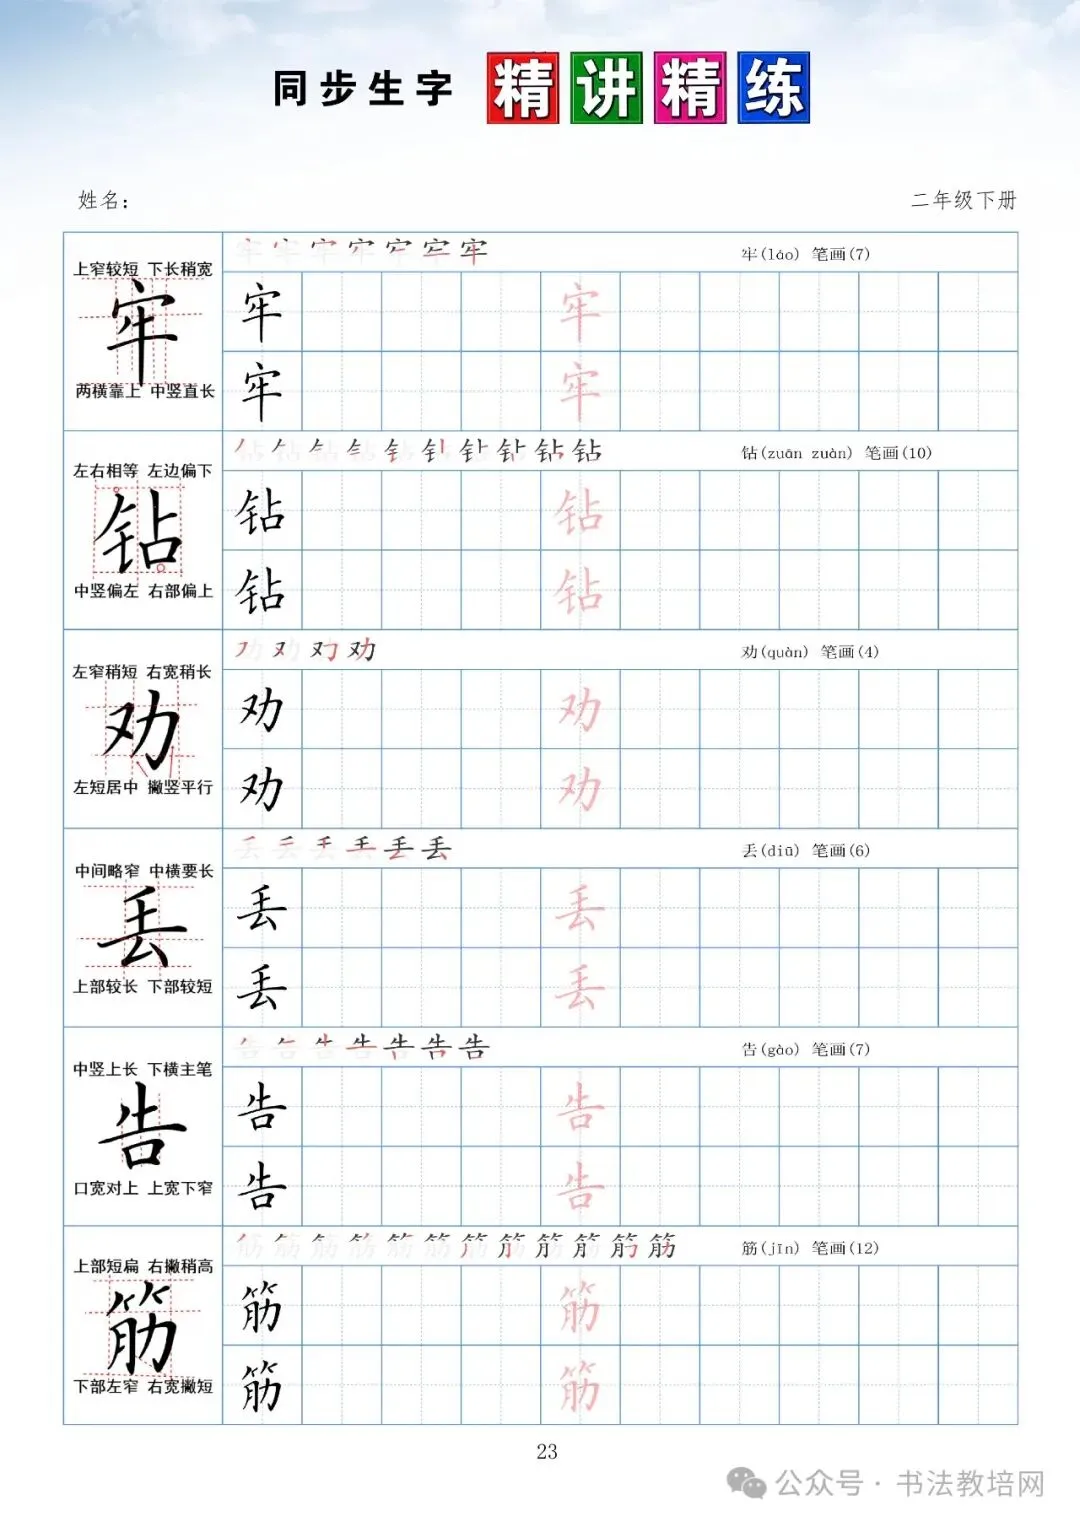 同步生字 精讲精练
姓名：
二年级下册
上窄较短 下长稍宽
牢
两横靠上 中竖直长
牢(láo) 笔画(7)
牢 牢
牢 牢
左右相等 左边偏下
钻
中竖偏左 右部偏上
钻(zuān zuàn) 笔画(10)
钻 钻
钻 钻
左窄稍短 右宽稍长
劝
左短居中 撇竖平行
劝(quàn) 笔画(4)
劝 劝
劝 劝
中间略窄 中横要长
丢
上部较长 下部较短
丢(diū) 笔画(6)
丢 丢
丢 丢
中竖上长 下横主笔
告
口宽对上 上宽下窄
告(gào) 笔画(7)
告 告
告 告
上部短扁 右撇稍高
筋
下部左窄 右宽撇短
筋(jīn) 笔画(12)
筋 筋
筋 筋
23
公众号·书法教培网